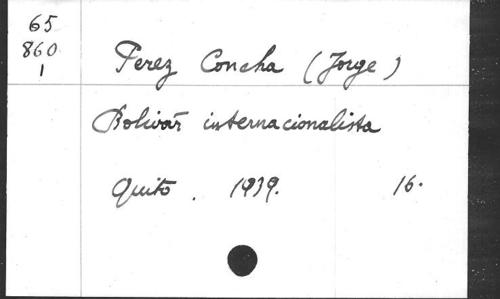 65
860
1
Perez Concha (Jorge)
Bolivár internacionalista
Quito. 1939. 16.